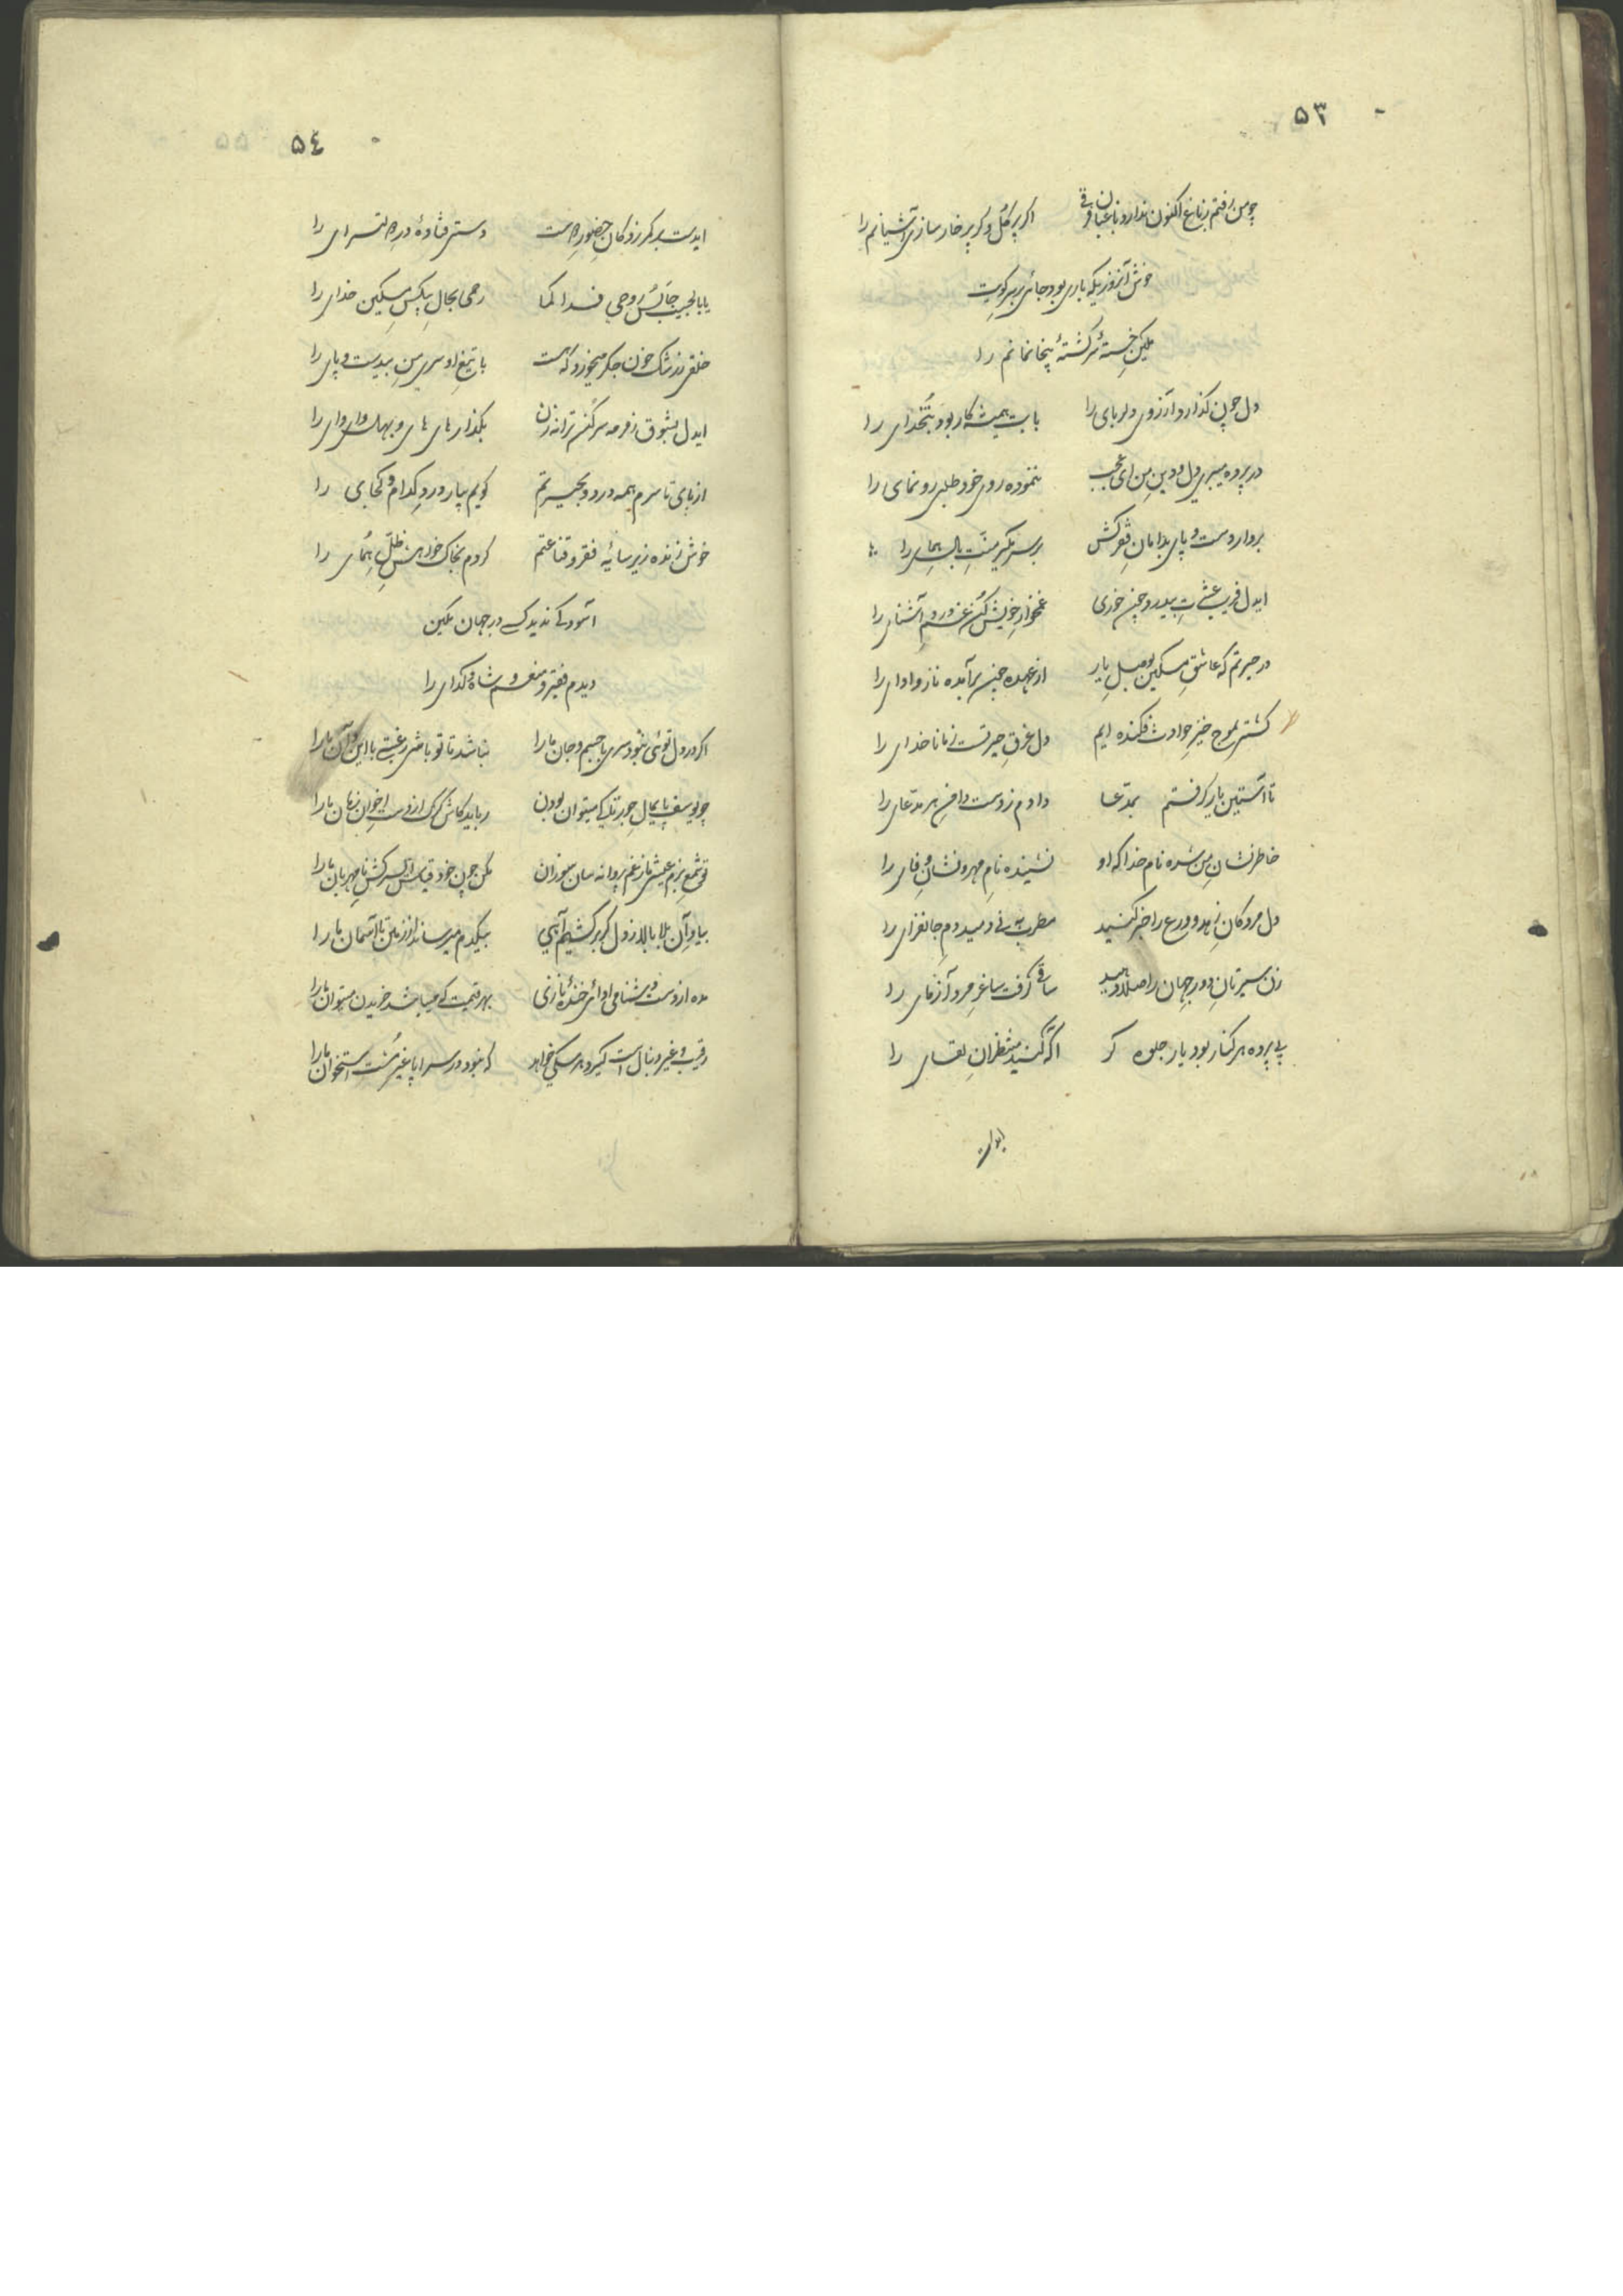 ۵۳
چو من رفتم ز باغ اکنون ندارد باغبان فرقی اکر پر کل و کر پر خار سازی آشیانم را
خوش آنروزیکه باری بود جائی بر سر کویت
مکین خستهٔ سرکشتهٔ بیخانمانم را
دل چون کذارد آرزوی دلربای را با بت همیشه کار بود را
در پرده میبری دل و دین من ای عجب ننموده روی خود طلبی رونمای را
بردار دست و پای بدامان فقر کش بر سر مکیر منت بال همای را
ایدل فریب بیدرد چن خوری غمخوار خویش کن غم و درد آشنای را
در حیرتم که عاشق مسکین بوصل یار از عهده چن برآیده ناز و ادای را
کشتی بموج خیز حوادث فکنده ایم دل غرق حیرتست ز ما ناخدای را
تا آستین یار کرفتم بمدعا دادم ز دست دامن هر مدعای را
خاطرنشان من شده نام خدا که او نشنیده نام مهر و نشان وفای را
دل مردکان زهد و ورع را خبر کنید مطرب به نی دمید دم جانفزای را
زن سیرتان دور جهان را صلا دهید ساقی کرفت ساغر مرد آزمای را
بی پرده هر کنار بود یار جلوه کر اکه کنید منتظران لقای را
ایدست
۵٤
ایدست بر کمر زدکان حضور دست دستی فتادهٔ در را
یا بالحبیب جانش روحی فدا لکما رحمی بحال بیکس مسکین خدای را
خلقی ز رشک خون جکر میخورد که هست با تیغ او سری من بیدست و پای را
ایدل بشوق زمزمه سر کن ترانه زن بکذار های های و بهل وای وای را
از پای تا سرم همه درد و بحیرتم کویم بیار درد کدام و کجای را
خوش زنده زیر سایهٔ فقر و قناعتم کردم بخاک خواهش ظل همای را
آسودکی ندید کسی در جهان مکین
دیدم فقیر و منعم و شاه و کدای را
اکر در دل توئی نبود سری با جسم و جان ما را نباشد تا تو باشی رغبتی با این و آن ما را
چو یوسف پایمال جور تا کی میتوان بودن رباید کاش کرک از دست اخوان زمان ما را
توئی شمع بزم عیش ما ز غم پروانه سان سوزان مکن چون خود قیاس از سرکشی نامهربان ما را
بیاد آن بلا بالا ز دل کر برکشیم آهی بیکدم میرساند از زمین تا آسمان ما را
مده از دست دشنامی ادائی خندهٔ نازی بهر قیمت که میباشد خریدن میتوان ما را
رقیب و غیر دنبال است کیرد هر سکی خواهد که نبود در سراپا غیر مشت استخوان ما را